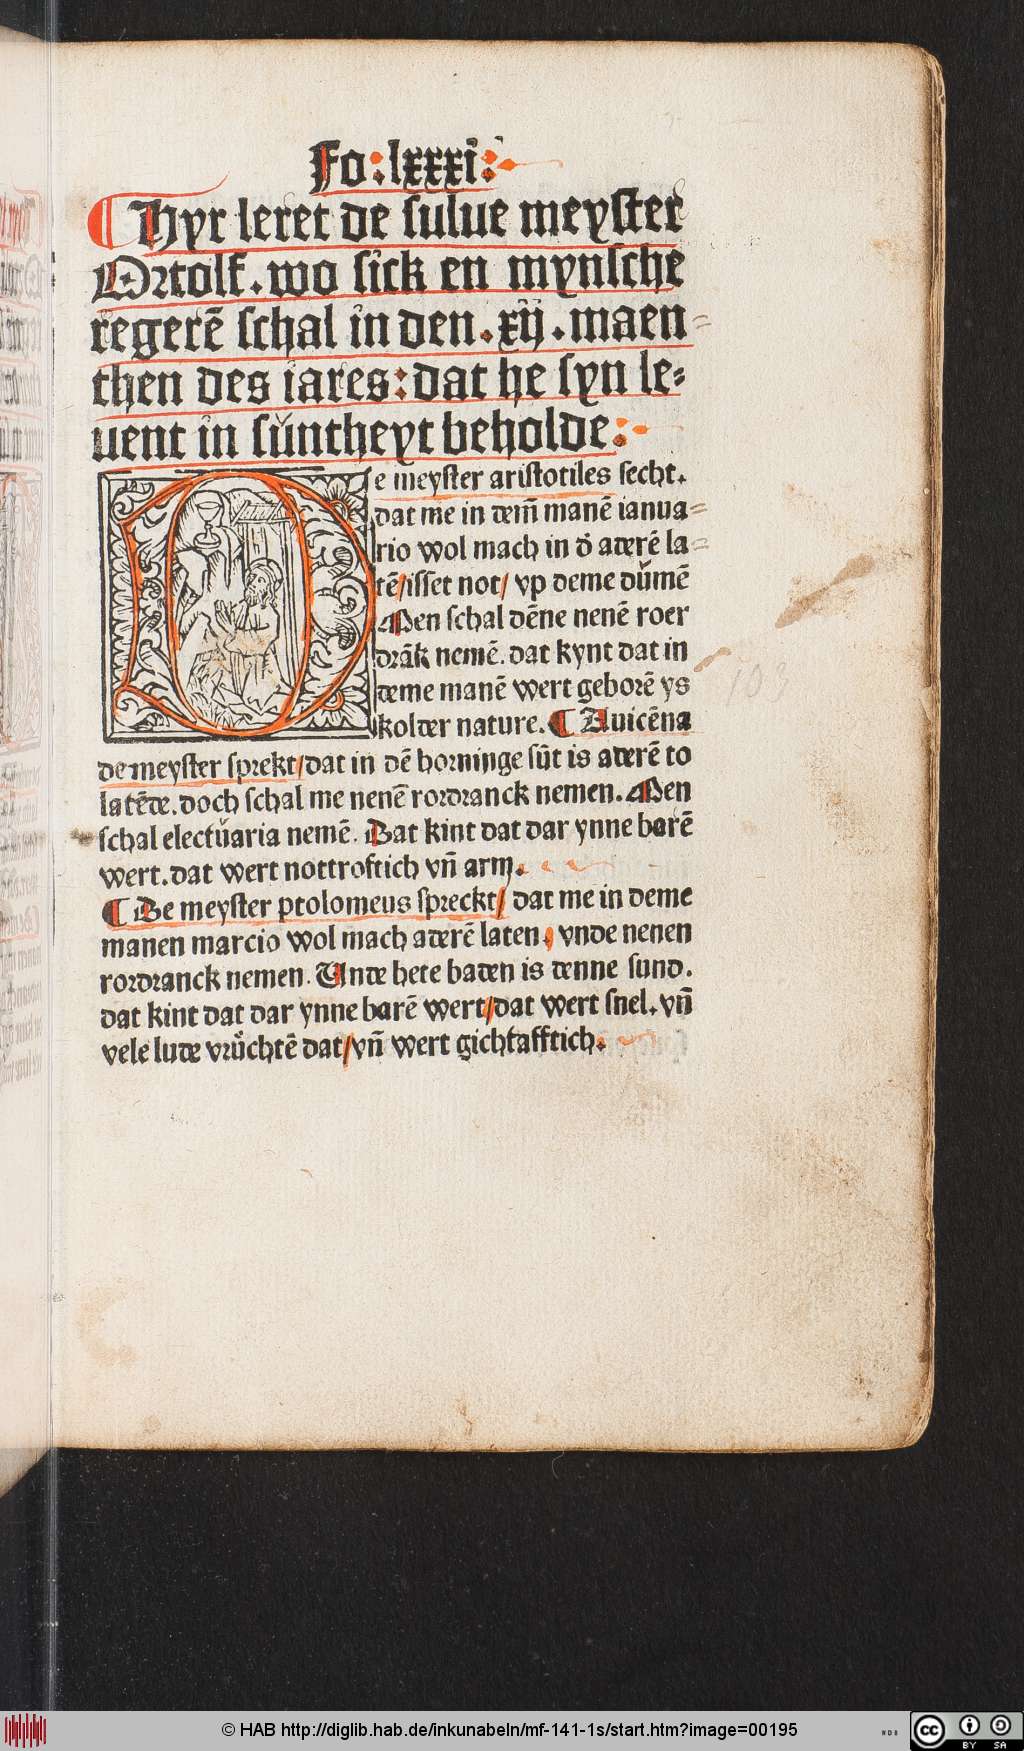 Fo: lxxxi:
¶ Hyr leret de sulue meyster
Ortolf. wo sick en mynsche
regerē schal in den. xij. maen=
then des iares: dat he syn le=
uent in sůntheyt beholde:
De meyster aristotiles secht.
dat me in dem̄ manē ianua=
rio wol mach in d' aderē la=
tē/isset not/ vp deme důmē
Men schal dēne nenē roer
drāk nemē. dat kynt dat in
deme manē wert geborē ys
kolder nature. ¶ Auicēna
de meyster sprekt/dat in dē horninge sūt is aderē to
latēde. doch schal me nenē rordranck nemen. Men
schal electůaria nemē. Dat kint dat dar ynne barē
wert. dat wert nottroftich vn̄ arm.
¶ De meyster ptolomeus spreckt/ dat me in deme
manen marcio wol mach aderē laten. vnde nenen
rordranck nemen. Unde hete baden is denne sund.
dat kint dat dar ynne barē wert/dat wert snel. vn̄
vele lude vrůchtē dat/vn̄ wert gichtafftich.
103
© HAB http://diglib.hab.de/inkunabeln/mf-141-1s/start.htm?image=00195
WDB
cc
BY SA